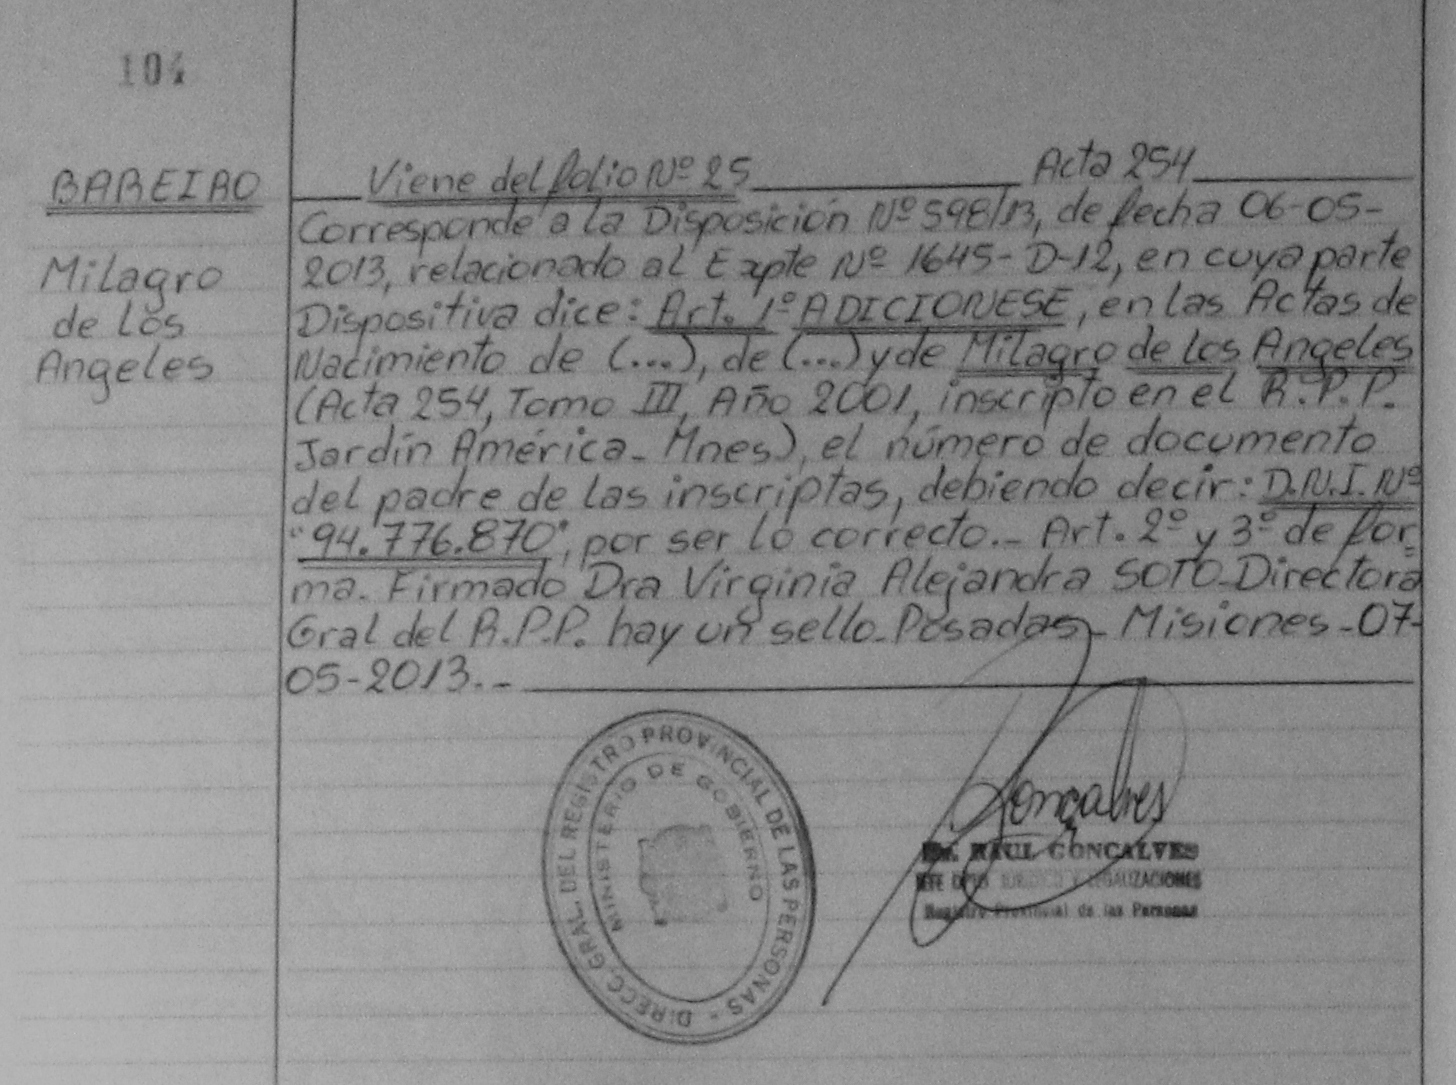 104
BAREIRO
Milagro
de los
Angeles
Viene del folio Nº 25 Acta 254
Corresponde a la Disposición Nº 598/13, de fecha 06-05-
2013, relacionado al Expte Nº 1645-D-12, en cuya parte
Dispositiva dice: Art. 1º ADICIONESE, en las Actas de
Nacimiento de (...), de (...) y de Milagro de los Angeles
(Acta 254, Tomo III, Año 2001, inscripto en el R.P.P.
Jardín América-Mnes), el número de documento
del padre de las inscriptas, debiendo decir: D.N.I. Nº
"94.776.870", por ser lo correcto.- Art. 2º y 3º de for=
ma. Firmado Dra Virginia Alejandra SOTO-Directora
Gral del R.P.P. hay un sello-Posadas-Misiones-07-
05-2013.-
DIRECC. GRAL. DEL REGISTRO PROVINCIAL DE LAS PERSONAS -
MINISTERIO DE GOBIERNO
Goncalves
RAUL GONCALVES
JEFE DPTO Y LEGALIZACIONES
Registro Provincial de las Personas